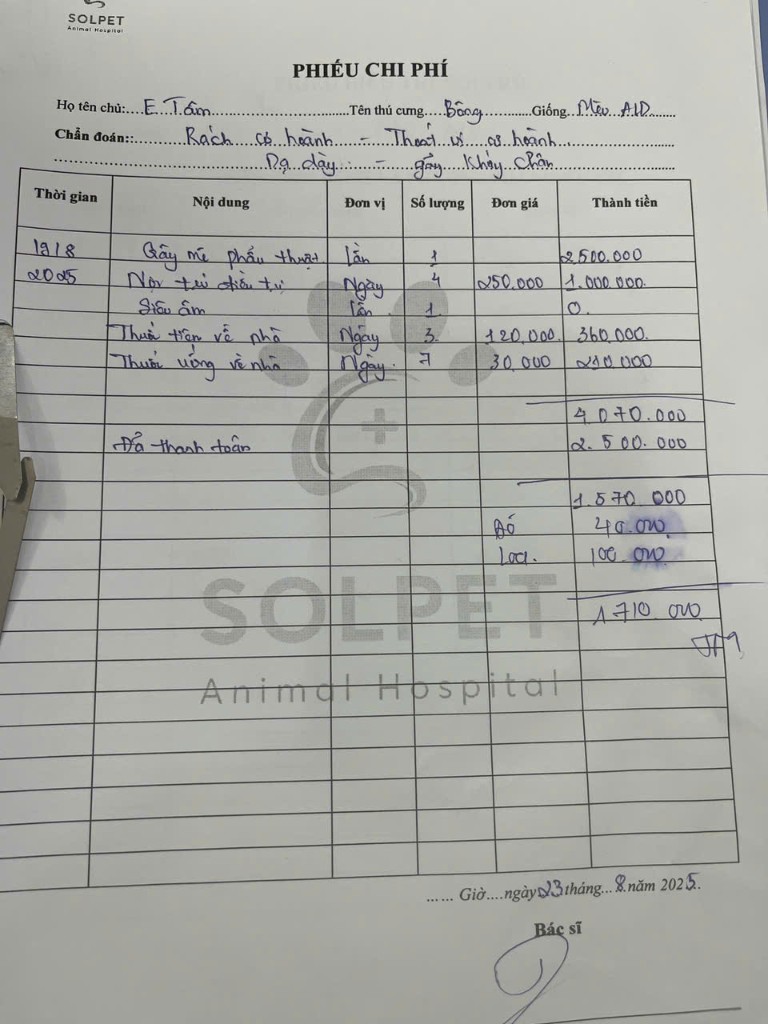 SOLPET
Animal Hospital
PHIẾU CHI PHÍ
Họ tên chủ:....E.Tâm..........Tên thú cưng....Bông..........Giống...Mèo ALD........
Chẩn đoán::.........Rách cơ hoành - Thoát vị cơ hoành...............
Dạ dày - gãy khủy chân
Thời gian Nội dung Đơn vị Số lượng Đơn giá Thành tiền
19/8 Gây mê phẩu thuật lần 1 2.500.000
2025 Nội trú điều trị Ngày 4 250.000 1.000.000.
Siêu âm lần 1 0.
Thuốc tiêm về nhà Ngày 3. 120.000. 360.000.
Thuốc uống về nhà Ngày. 7 30.000 210.000
4.070.000
Đã thanh toán 2.500.000
1.570.000
Đó 40.000
Loa. 100.000
1.710.000
SOLPET
Animal Hospital
...... Giờ....ngày 23 tháng...8.năm 2025.
Bác sĩ